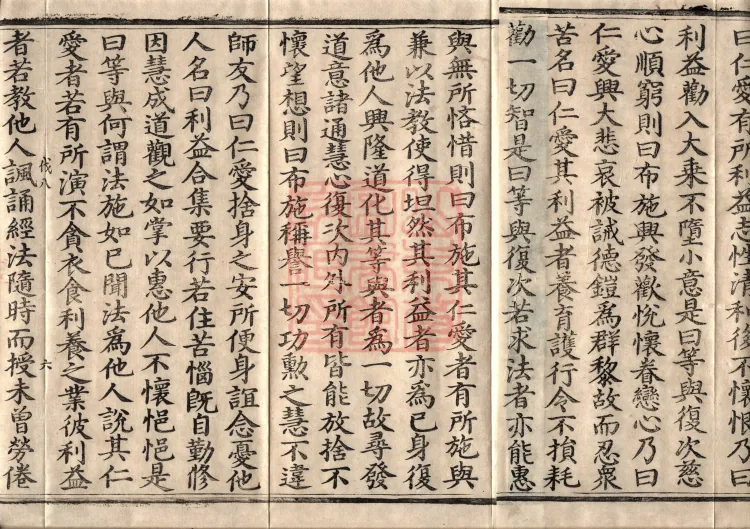 曰仁愛有所利益志性清和後不懷恨乃曰
利益勸入大乗不墮小意是曰等與復次慈
心順窮則曰布施興發歡悅懷眷戀心乃曰
仁愛興大悲哀被誡德鎧爲群黎故而忍衆
苦名曰仁愛其利益者養育護行令不損耗
勸一切智是曰等與復次若求法者亦能惠
與無所悋惜則曰布施其仁愛者有所施與
兼以法教使得坦然其利益者亦爲已身復
爲他人興隆道化其等與者爲一切故尋發
道意諸通慧心復次内外所有皆能放捨不
懷望想則曰布施稱譽一切功勲之慧不違
師友乃曰仁愛捨身之安所便身誼念憂他
人名曰利益合集要行若住苦惱既自勤修
因慧成道觀之如掌以惠他人不懷悒悒是
曰等與何謂法施如已聞法爲他人說其仁
愛者若有所演不貪衣食利養之業彼利益
伐八 六
者若教他人諷誦經法隨時而授未曾勞倦